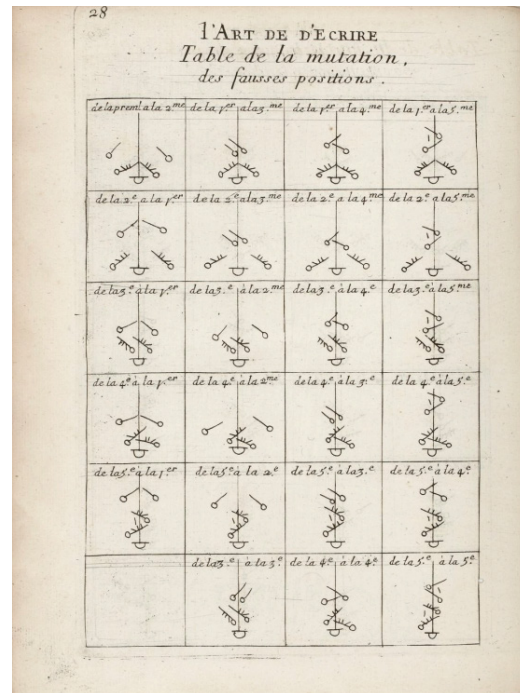 28
l'ART DE D'ECRIRE
Table de la mutation,
des fausses positions.
de la prem! a la 2.me de la 1.er a la 3.me de la 1.er a la 4.me de la 1.er a la 5.me
de la 2.e a la 1.er de la 2.e a la 3.me de la 2.e a la 4.me de la 2.e a la 5.me
de la 3.e à la 1.er de la 3.e à la 2.me de la 3.e à la 4.e de la 3.e à la 5.me
de la 4.e à la 1.er de la 4.e à la 2.me de la 4.e à la 3.e de la 4.e à la 5.e
de la 5.e à la 1.er de la 5.e à la 2.e de la 5.e à la 3.e de la 5.e à la 4.e
de la 3.e à la 3.e de la 4.e à la 4.e de la 5.e à la 5.e